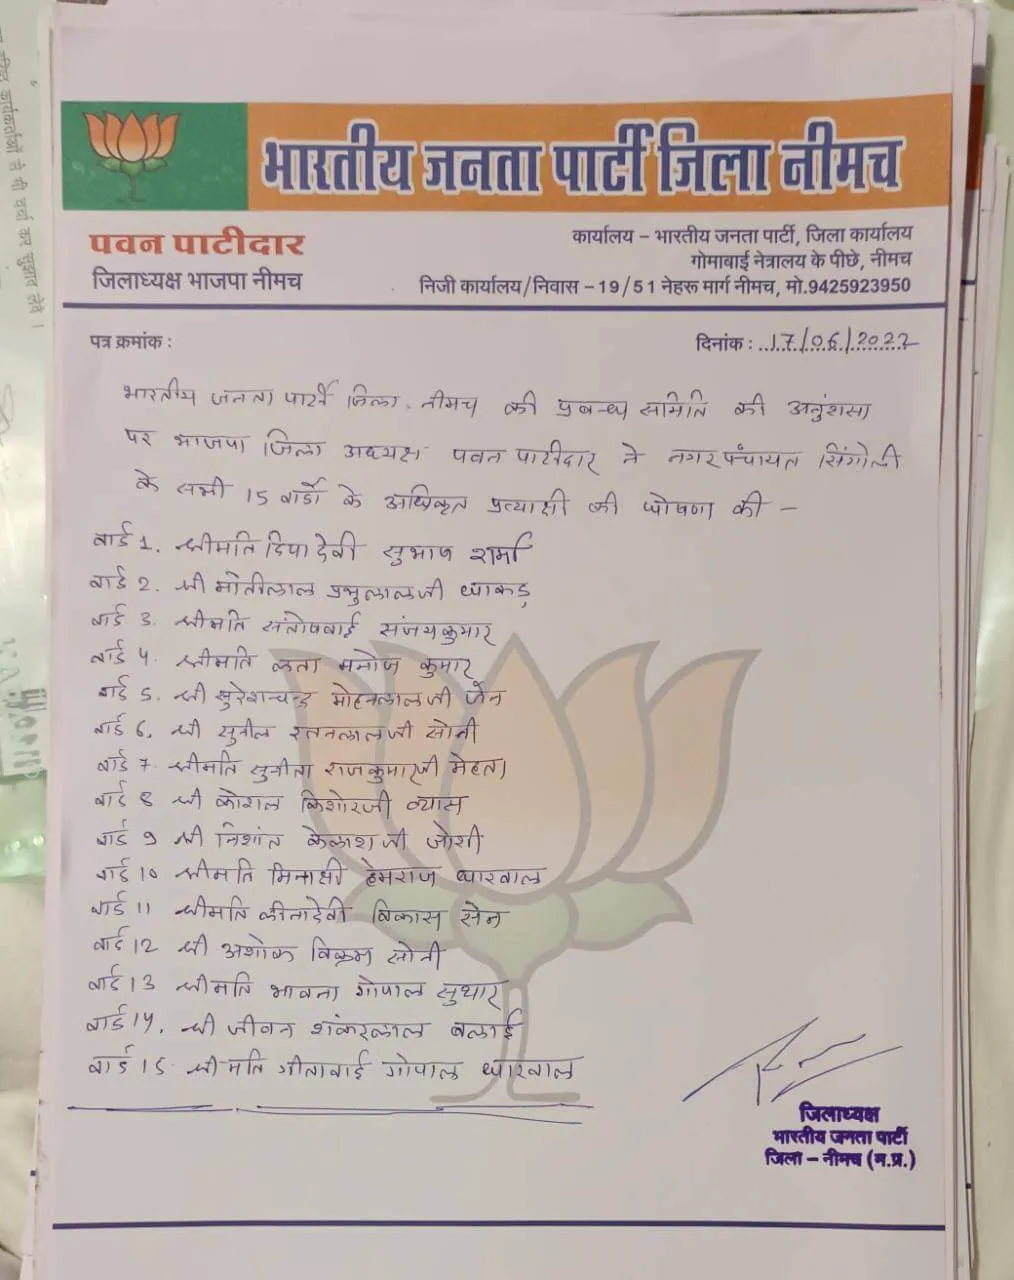 भारतीय जनता पार्टी जिला नीमच
पवन पाटीदार
जिलाध्यक्ष भाजपा नीमच
कार्यालय – भारतीय जनता पार्टी, जिला कार्यालय
गोमाबाई नेत्रालय के पीछे, नीमच
निजी कार्यालय/निवास – 19/51 नेहरू मार्ग नीमच, मो.9425923950
पत्र क्रमांक :
दिनांक : 17/06/2022
भारतीय जनता पार्टी जिला नीमच की प्रबन्ध समिति की अनुंशसा
पर भाजपा जिला अध्यक्ष पवन पाटीदार ने नगर पंचायत सिंगोली
के सभी 15 वार्डो के अधिकृत प्रत्याशी की घोषणा की –
वार्ड 1. श्रीमति दिपादेवी सुभाष शर्मा
वार्ड 2. श्री मोतीलाल प्रभुलालजी धाकड़
वार्ड 3. श्रीमति संतोषबाई संजयकुमार
वार्ड 4. श्रीमति लता मनोज कुमार
वार्ड 5. श्री सुरेशचन्द्र मोहनलालजी जैन
वार्ड 6. श्री सुनील रतनलालजी सोनी
वार्ड 7. श्रीमति सुनीता राजकुमारजी मेहता
वार्ड 8 श्री कोशल किशोरजी व्यास
वार्ड 9 श्री निशांत केलाश जी जोशी
वार्ड 10 श्रीमति मिनाक्षी हेमराज धारवाल
वार्ड 11 श्रीमति लीलादेवी विकास सेन
वार्ड 12 श्री अशोक विक्रम सोनी
वार्ड 13 श्रीमति भावना गोपाल सुथार
वार्ड 14. श्री जीवन शंकरलाल बलाई
वार्ड 15 श्रीमति गीताबाई गोपाल धारवाल
जिलाध्यक्ष
भारतीय जनता पार्टी
जिला – नीमच (म.प्र.)
से भी चर्चा कर सुझाव लेवे ।